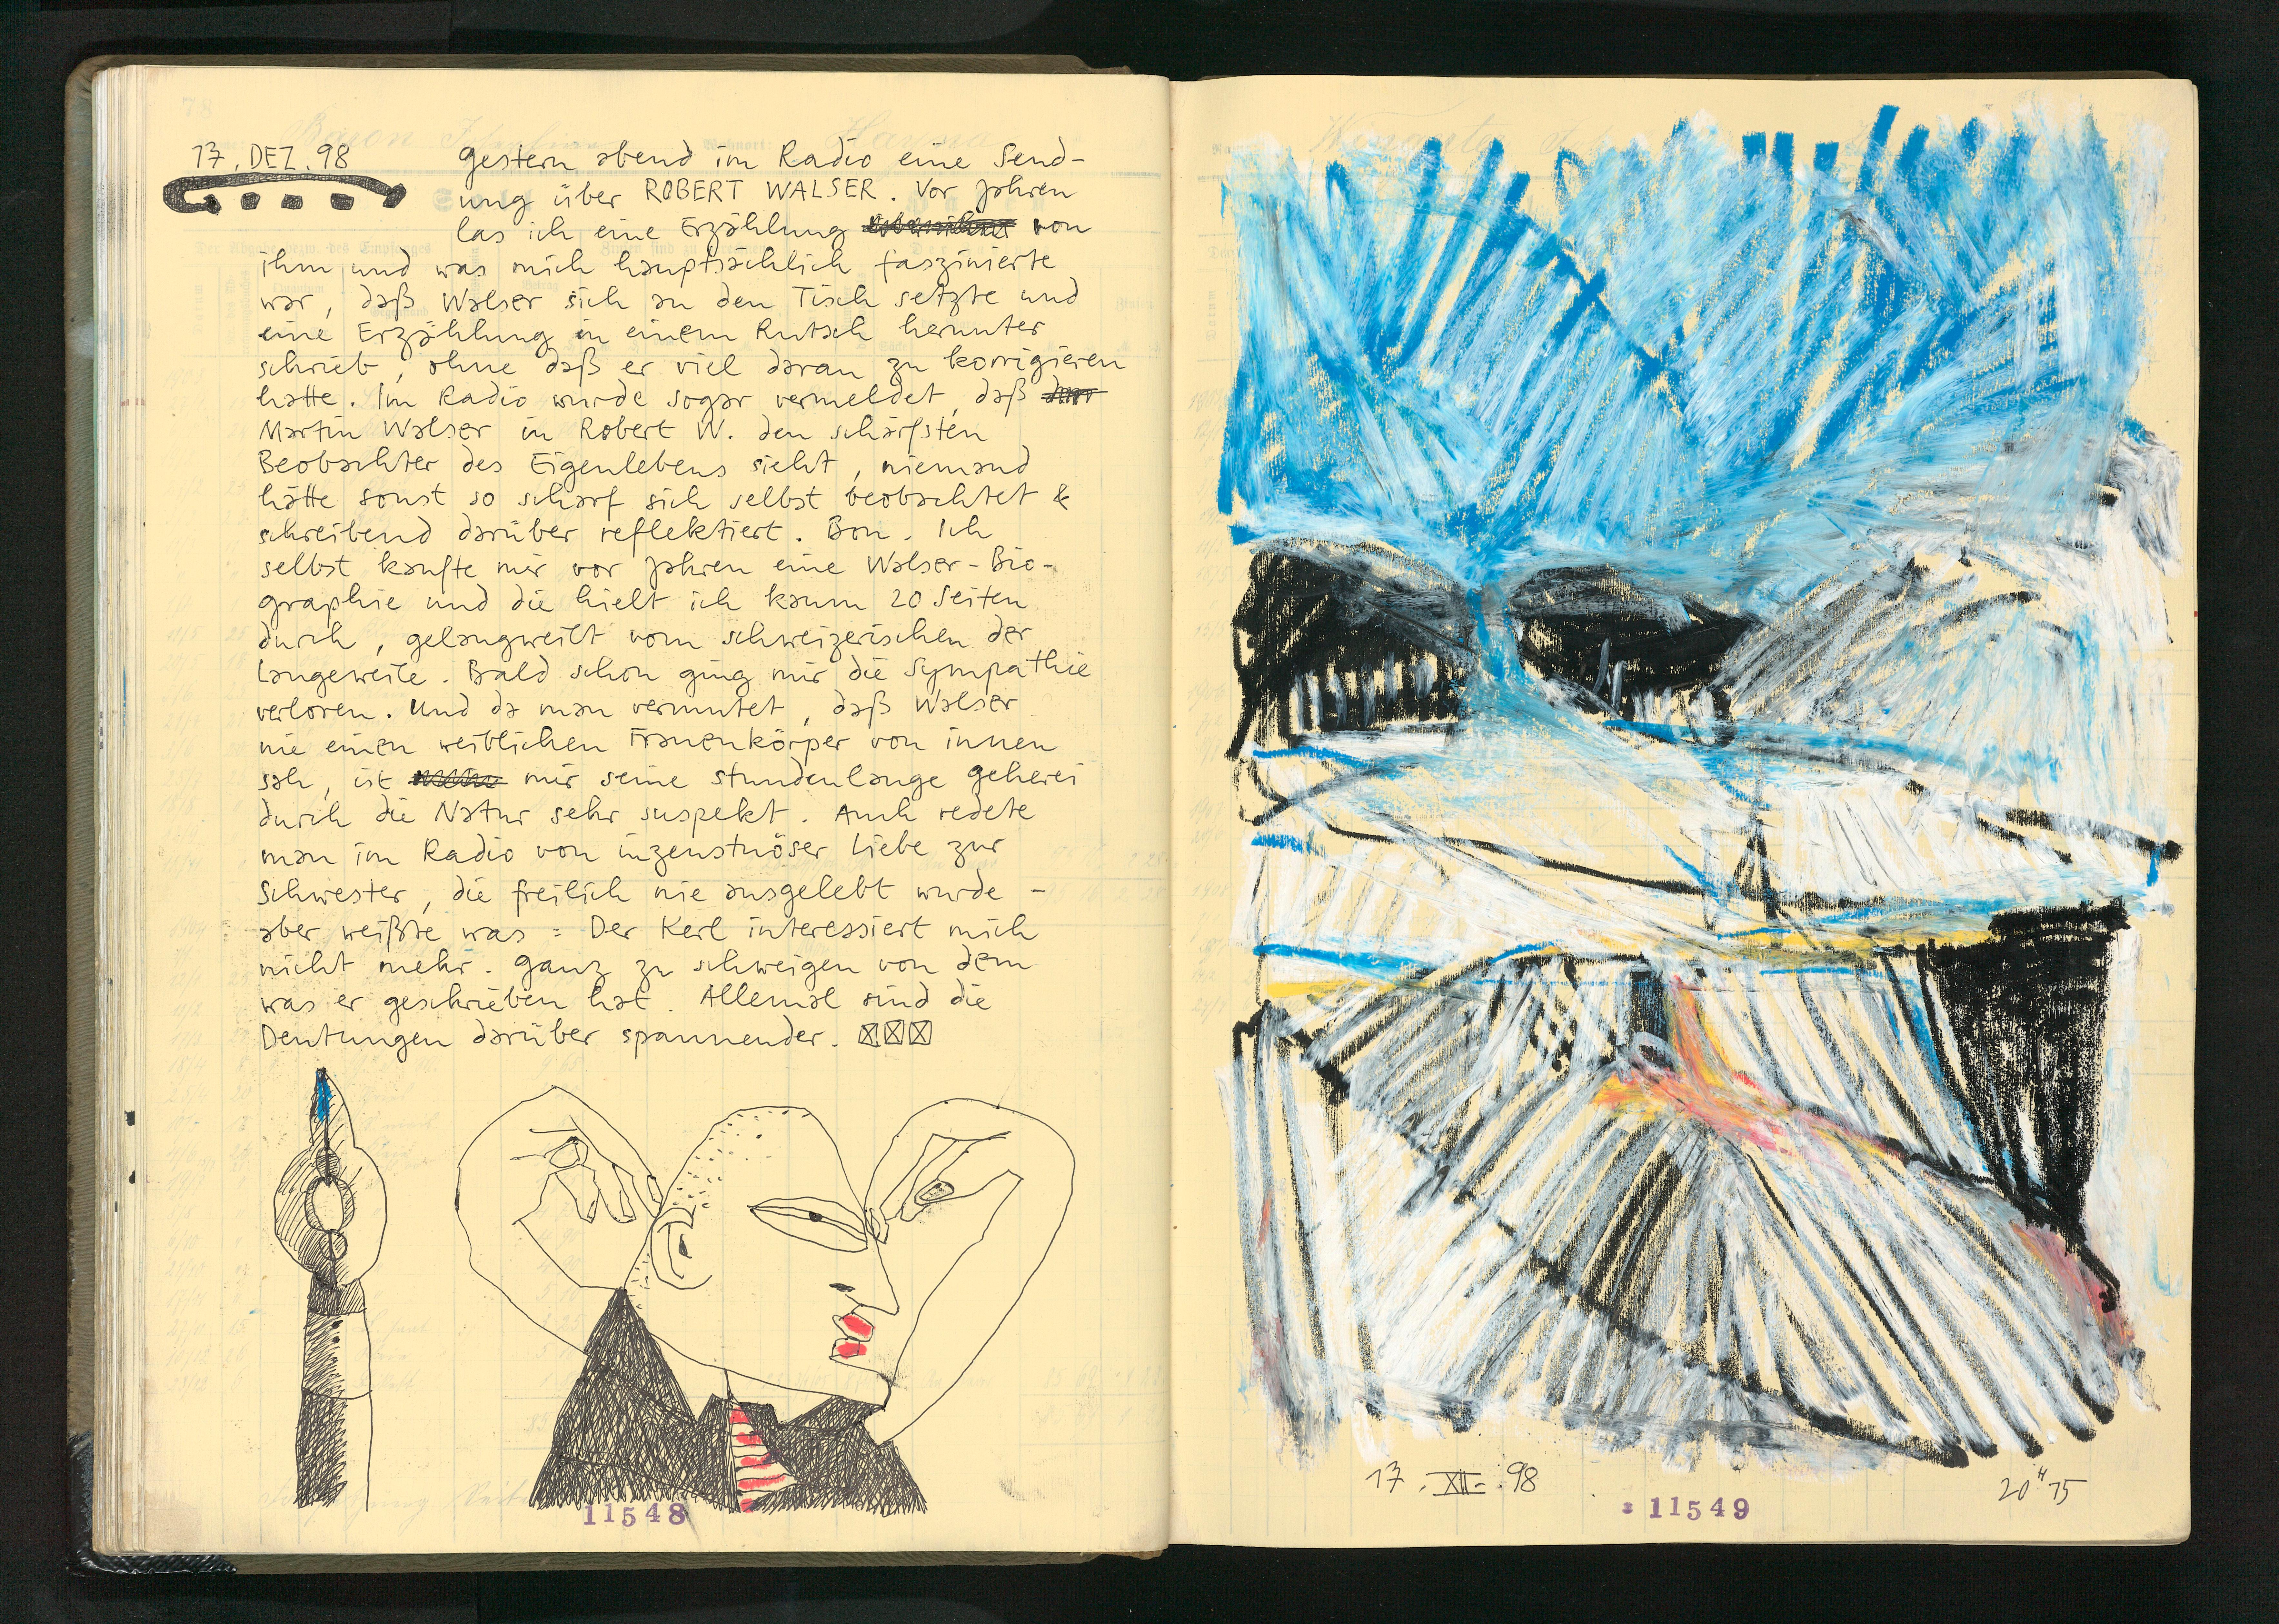 17. DEZ. 98
gestern abend im Radio eine Send-
ung über ROBERT WALSER. Vor Jahren
las ich eine Erzählung von
ihm und was mich hauptsächlich faszinierte
war, daß Walser sich an den Tisch setzte und
eine Erzählung in einem Rutsch herunter
schrieb, ohne daß er viel daran zu korrigieren
hatte. Im Radio wurde sogar vermeldet, daß
Martin Walser in Robert W. den schärfsten
Beobachter des Eigenlebens sieht, niemand
hätte sonst so scharf sich selbst beobachtet &
schreibend darüber reflektiert. Bon. Ich
selbst kaufte mir vor Jahren eine Walser-Bio-
graphie und die hielt ich kaum 20 Seiten
durch, gelangweilt vom schweizerischen der
Langeweile. Bald schon ging mir die Sympathie
verloren. Und da man vermutet, daß Walser
nie einen weiblichen Frauenkörper von innen
sah, ist mir seine stundenlange geherei
durch die Natur sehr suspekt. Auch redete
man im Radio von inzenstuöser Liebe zur
Schwester, die freilich nie ausgelebt wurde -
aber weißte was = Der Kerl interessiert mich
nicht mehr. ganz zu schweigen von dem
was er geschrieben hat. Allemal sind die
Deutungen darüber spannender.
11548
17. XII. 98
11549
20 H 15